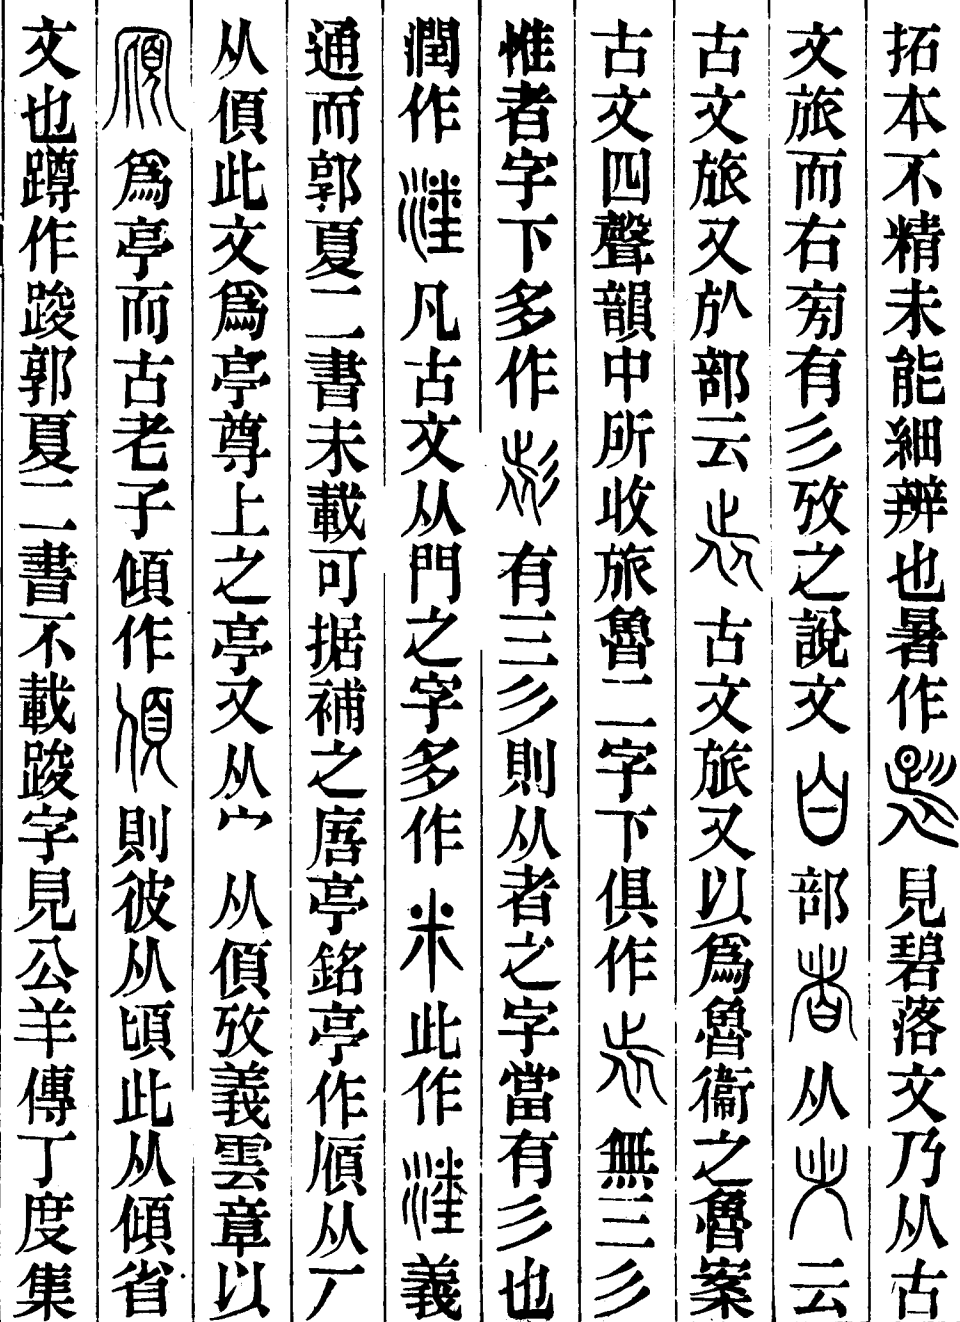 拓本不精未能細辨也暑作見碧落文乃从古
文旅而右旁有彡攷之說文部从云
古文旅又於部云古文旅又以爲魯衞之魯案
古文四聲韻中所收旅魯二字下俱作無三彡
惟者字下多作有三彡則从者之字當有彡也
潤作凡古文从門之字多作此作義
通而郭夏二書未載可据補之唐亭銘亭作傾从厂
从傎此文爲亭尊上之亭又从宀从傎攷義雲章以
爲亭而古老子傾作則彼从頃此从傾省
文也蹲作踆郭夏二書不載踆字見公羊傳丁度集